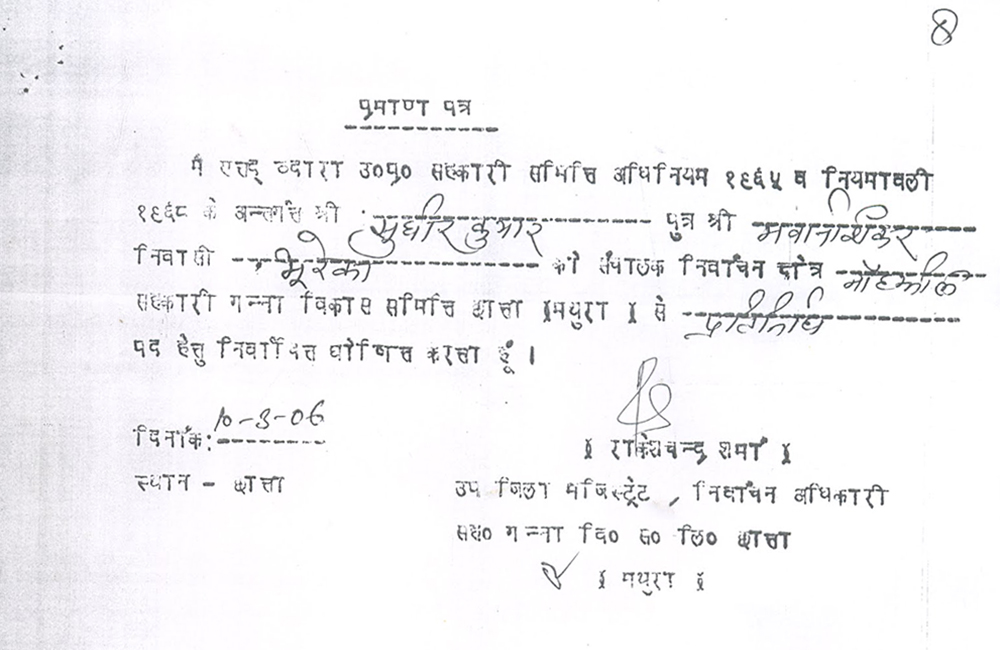 प्रमाण पत्र
मै एतद् व्दारा उ०प्र० सहकारी समिति अधिनियम १९६५ व नियमावली
१९६८ के अन्तर्गत श्री सुधीर कुमार पुत्र श्री भवानीशंकर
निवासी भूरेका को संचालक निर्वाचन क्षेत्र नौहझील
सहकारी गन्ना विकास समिति छाता (मथुरा) से प्रतिनिधि
पद हेतु निर्वाचित घोषित करता हूँ ।
दिनांक: 10-3-06
( राकेशचन्द्र शर्मा )
स्थान - छाता
उप जिला मजिस्ट्रेट , निर्वाचन अधिकारी
सह० गन्ना वि० स० लि० छाता
( मथुरा )